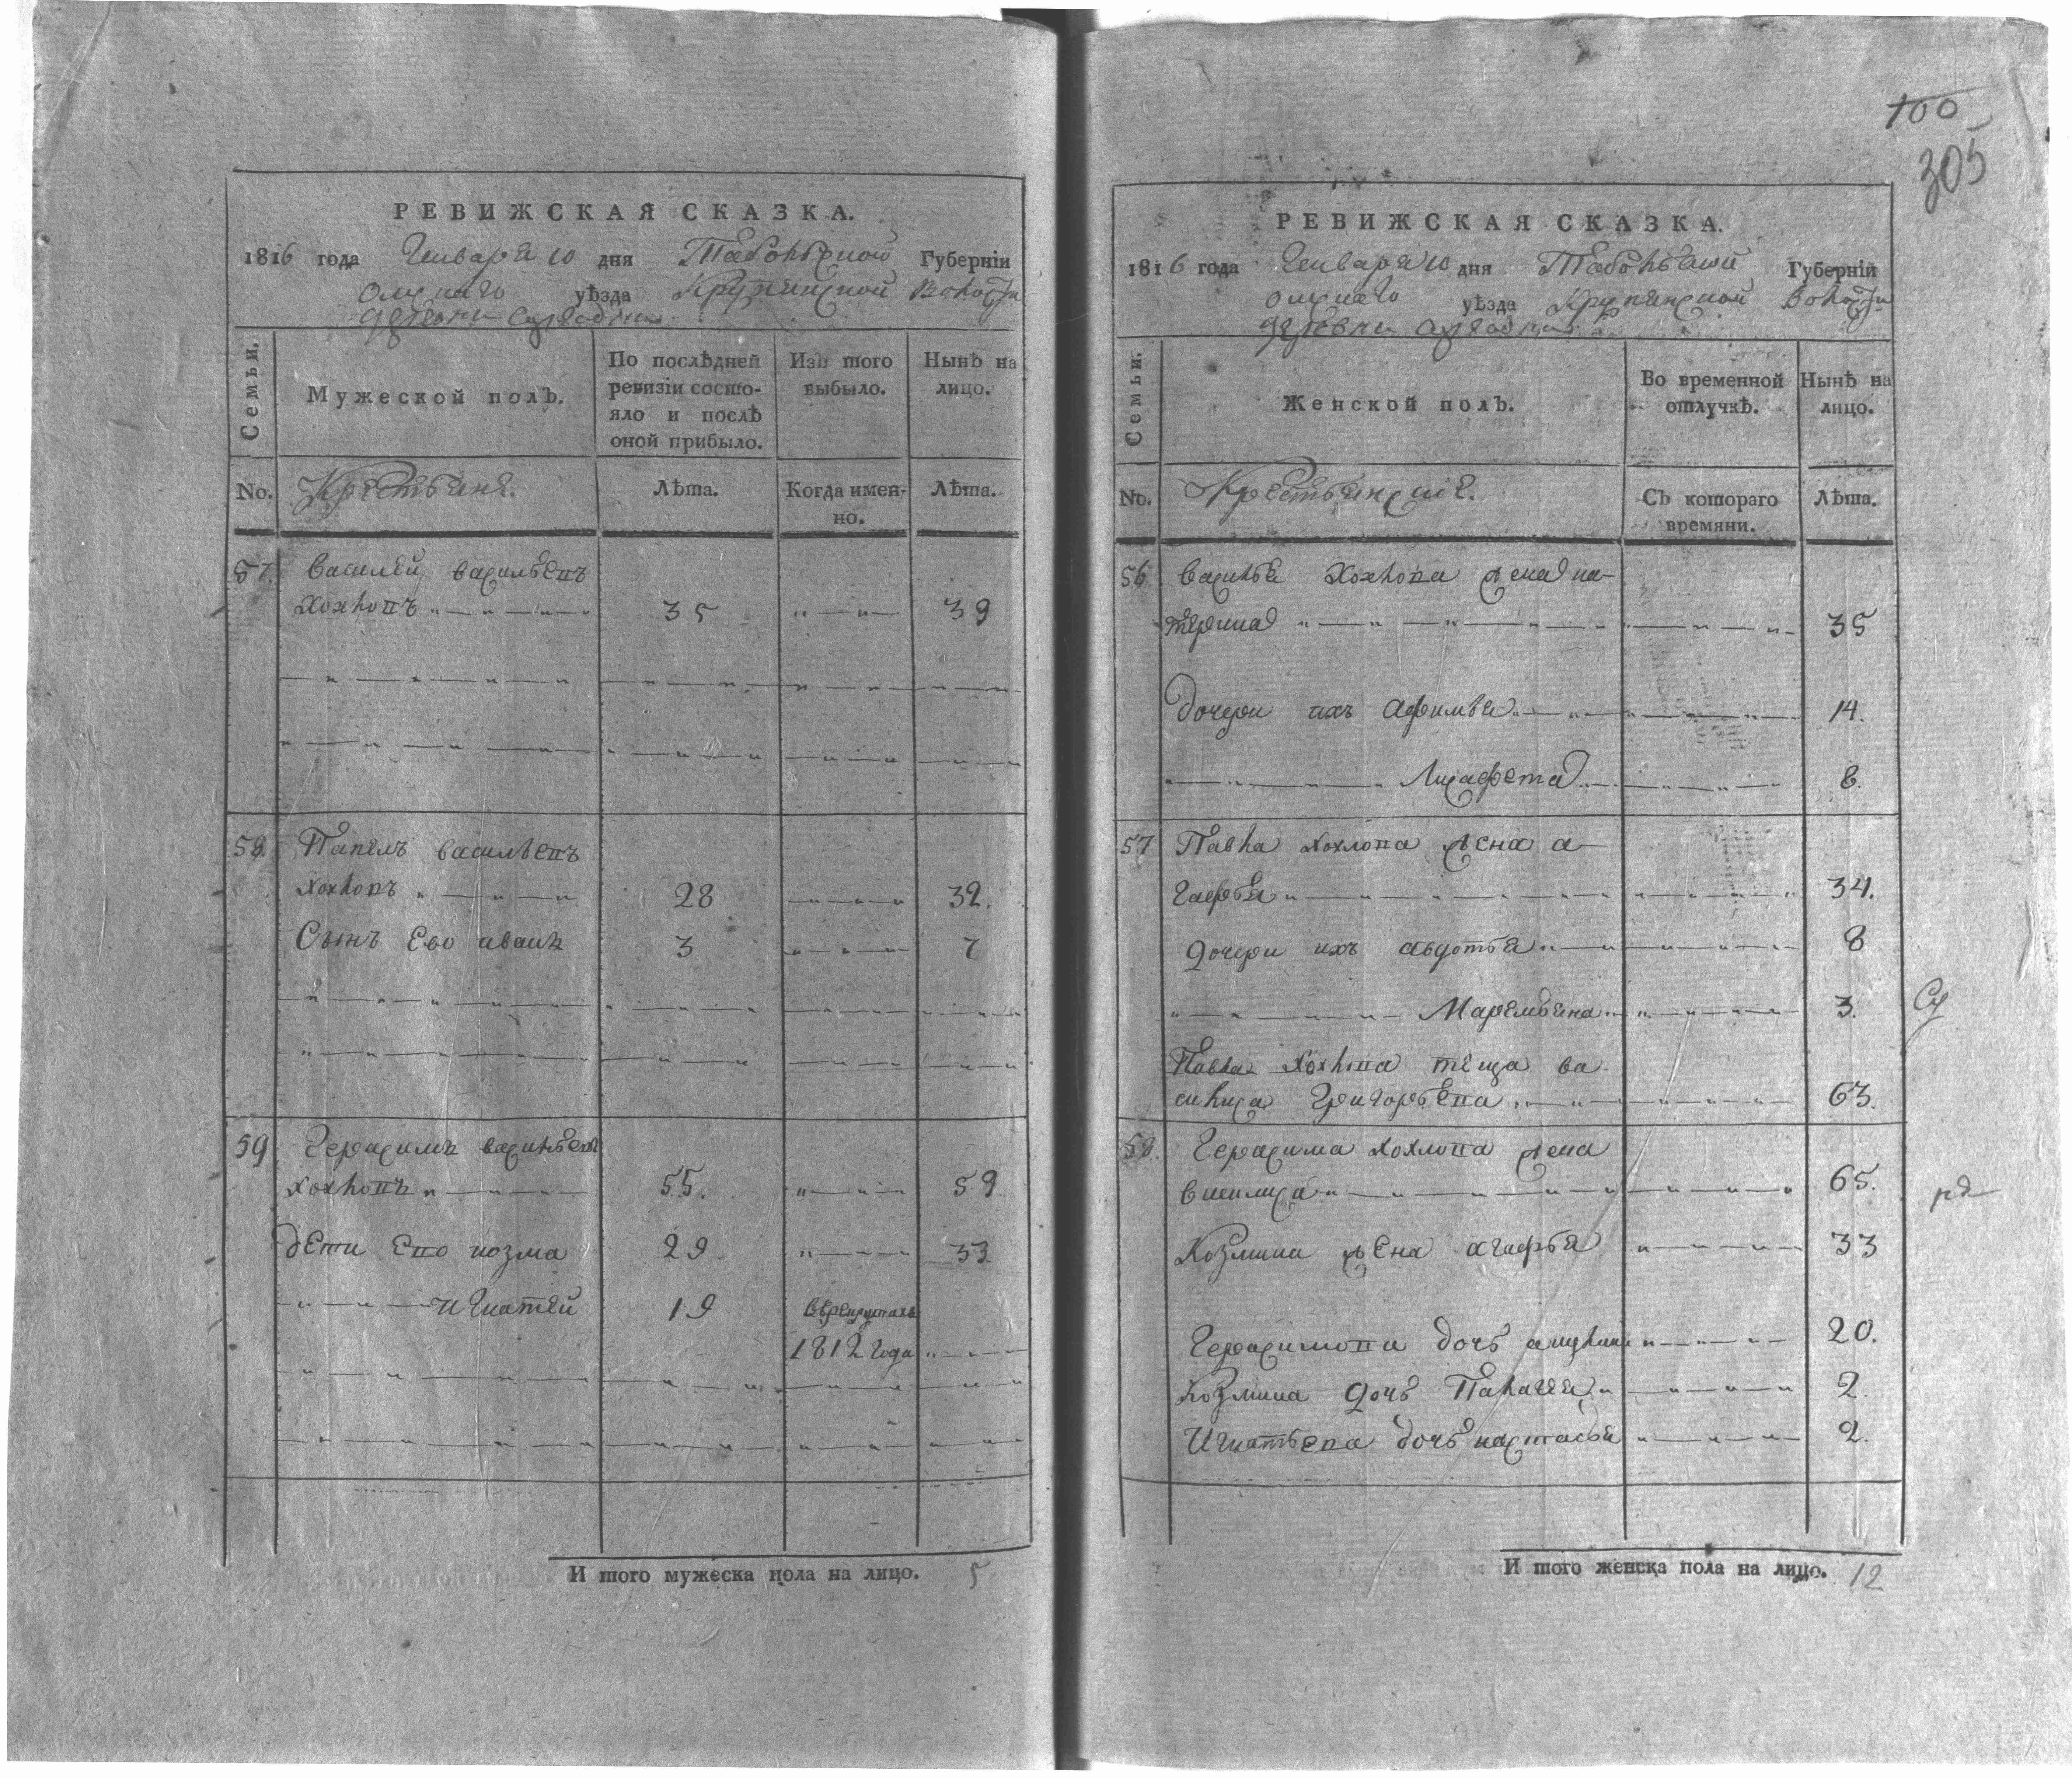 РЕВИЖСКАЯ СКАЗКА.
1816 года Генваря 10 дня Тобольской Губерніи
Омскаго уѣзда Крупинской Волости
деревни
Семьи.
Мужеской полъ.
По послѣдней ревизіи состояло и послѣ оной прибыло.
Изъ того выбыло.
Нынѣ на лицо.
No. Крестьяне. Лѣта. Когда именно. Лѣта.
57. Василей Васильевъ
Хохловъ 35 39
58. Павелъ Васильевъ
Хохловъ 28 32.
Сынъ Ево Иванъ 3 7
59 Герасимъ Васильевъ
Хохловъ 55. 59
Дети Ево Козма 29 33
Игнатей 19 в рекрутахъ
1812 года
И того мужеска пола на лицо. 5
100
305
РЕВИЖСКАЯ СКАЗКА.
1816 года Генваря 10 дня Тобольской Губерніи
Омскаго уѣзда Крупинской Волости
деревни
Семьи.
Женской полъ.
Во временной отлучкѣ.
Нынѣ на лицо.
No. Крестьянскіе. Съ котораго времяни. Лѣта.
56 Василья Хохлова жена Ка-
терина 35
Дочери ихъ Афимья 14.
Лисафета 8.
57 Павла Хохлова жена А-
гафья 34.
Дочери ихъ Авдотья 8
Маремьяна 3.
Павла Хохлова теща Ва
силиса Григорьева 63.
58. Герасима Хохлова жена
Василиса 65.
Козмина жена Агафья 33
Герасимова дочь 20.
Козмина дочь Палагея 2.
Игнатьева дочь Настасья 2.
И того женска пола на лицо. 12